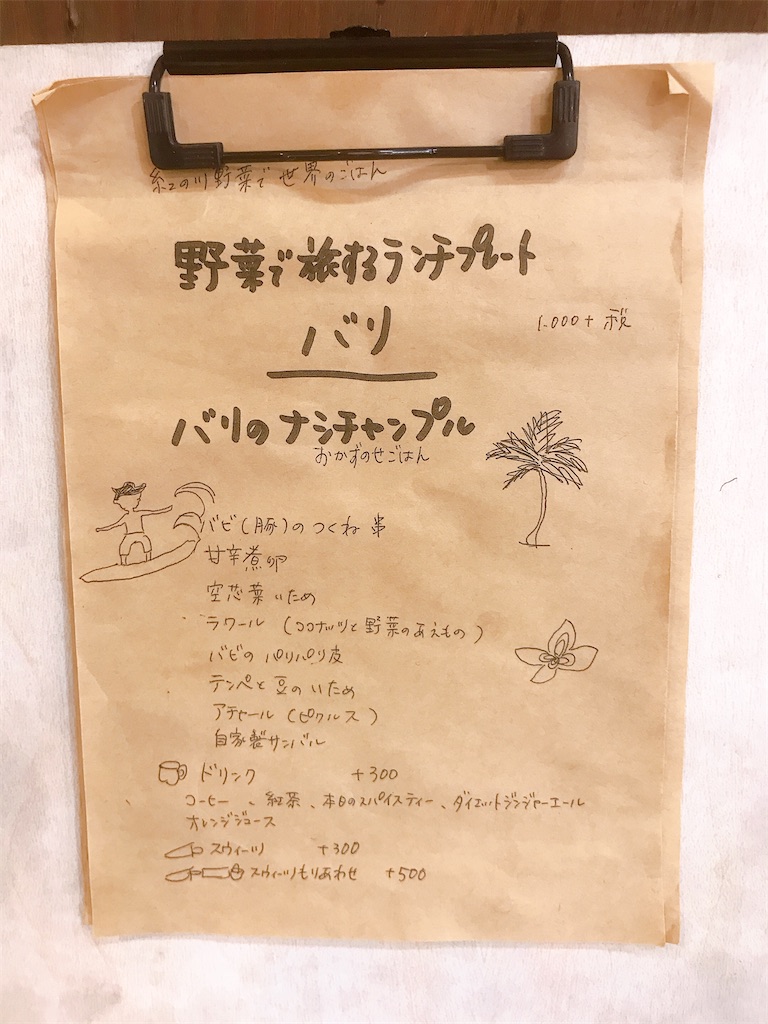 紅の川野菜で世界のごはん
野菜で旅するランチプレート
バリ
1.000+税
バリのナシチャンプル
おかずのせごはん
バビ(豚)のつくね串
甘辛煮卵
空芯菜いため
ラワール (ココナッツと野菜のあえもの)
バビのパリパリ皮
テンペと豆のいため
アチャール (ピクルス)
自家製サンバル
ドリンク +300
コーヒー、紅茶、本日のスパイスティー、ダイエットジンジャーエール
オレンジジュース
スウィーツ +300
スウィーツもりあわせ +500